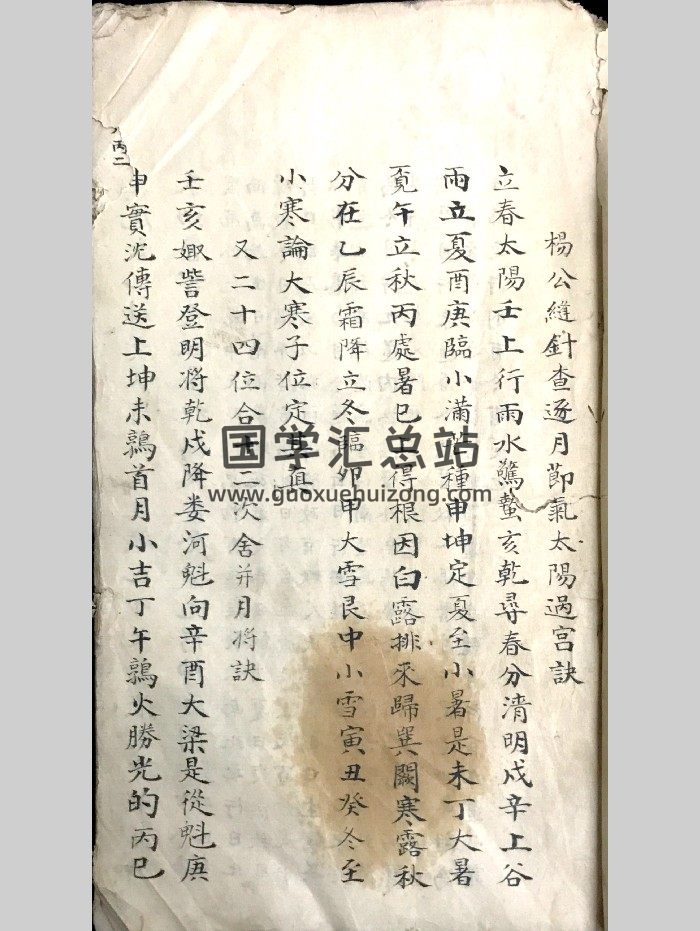 楊公縫針查逐月節氣太陽過宮訣
立春太陽壬上行雨水驚蟄亥乾尋春分清明戌辛上谷
雨立夏酉庚臨小滿芒種申坤定夏至小暑是未丁大暑
覔午立秋丙處暑巳上得根因白露排來歸巽闕寒露秋
分在乙辰霜降立冬臨卯甲大雪艮中小雪寅丑癸冬至
小寒論大寒子位定其真
又二十四位合十二次舍并月将訣
壬亥娵訾登明将乾戌降婁河魁向辛酉大梁是從魁庚
申實沈傳送上坤未鶉首月小吉丁午鶉火勝光的丙巳
丙二
国学汇总站
www.guoxuehuizong.com